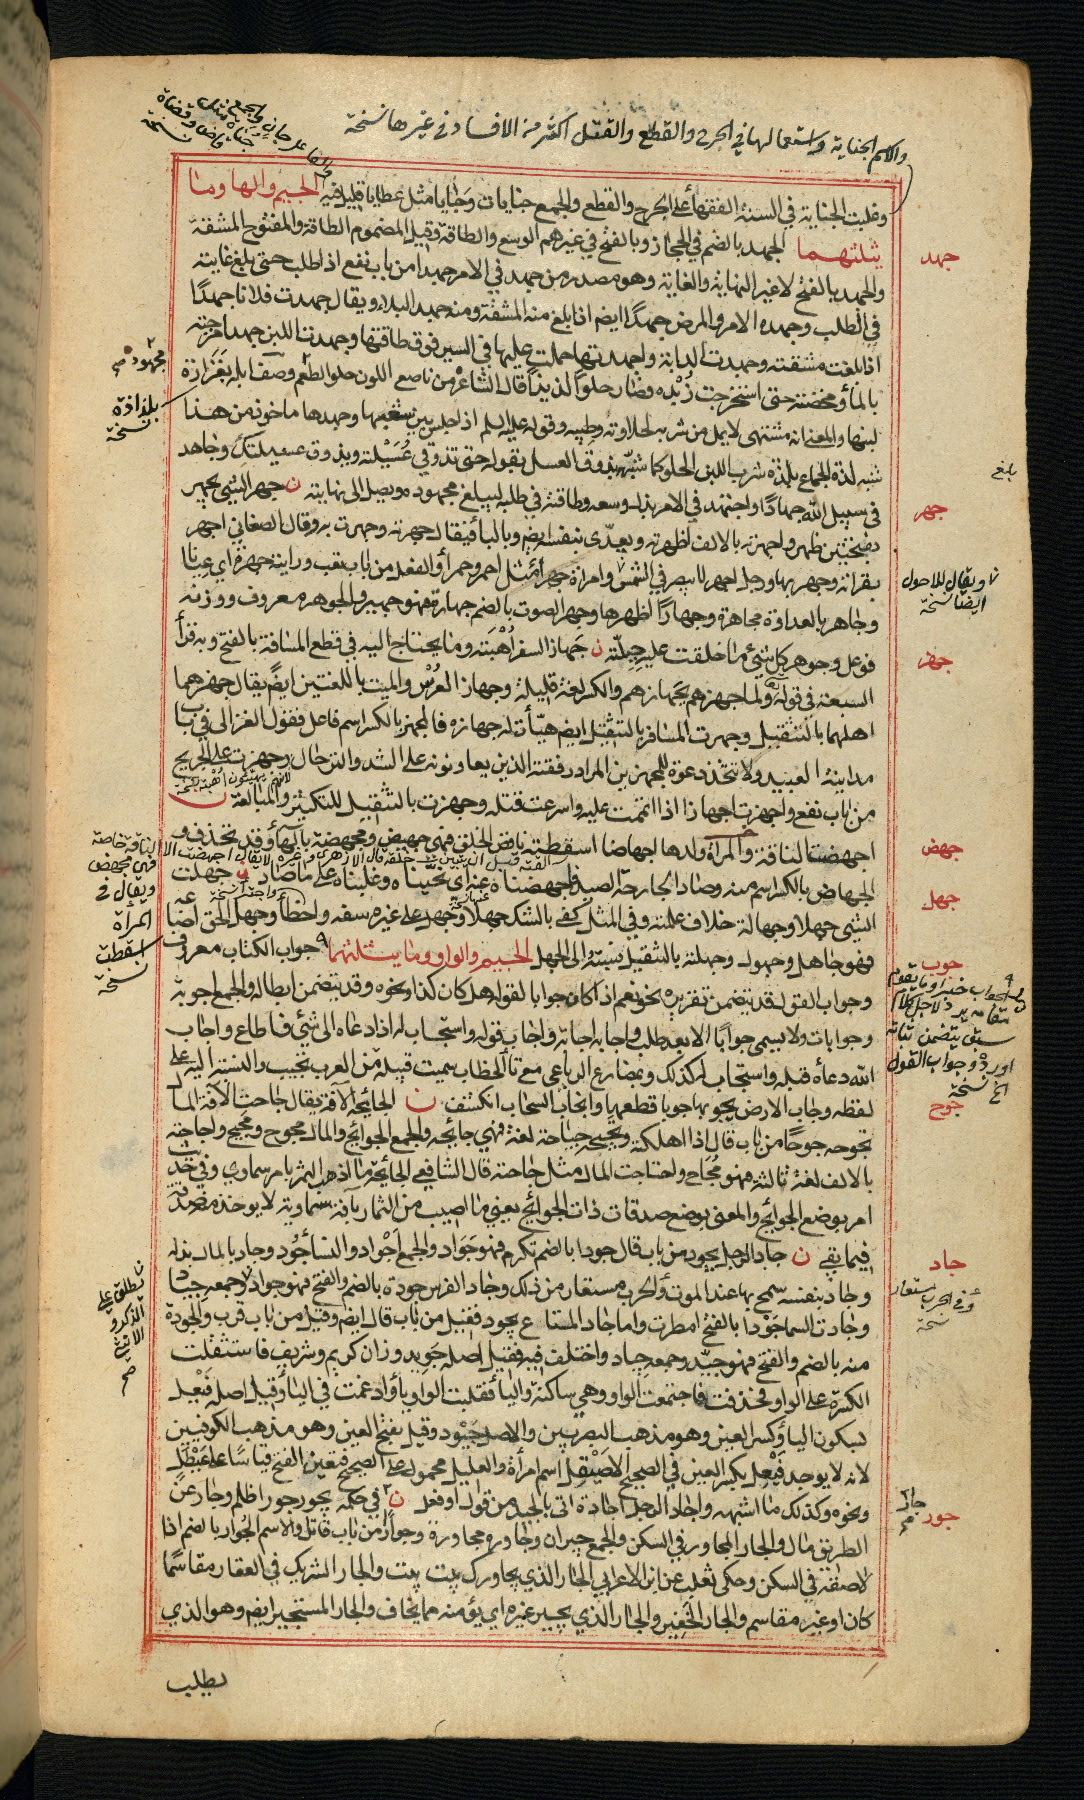 والاسم الجناية واستعمالها في الجرح والقطع والقتل أكثر من الافساد في غيرها نسخة
والفاعل جان والجمع
جناة مثل
قاض وقضاة
نسخة
وغلبت الجناية في السنة الفقهاء على الجرح والقطع والجمع جنايات وجنايا مثل عطايا قليل فيه الجيم والهاء وما
يثلثهما الجهد بالضم في الحجاز وبالفتح في غيرهم الوسع والطاقة وقيل المضموم الطاقة والمفتوح المشقة
والجهد بالفتح لا غير النهاية والغاية وهو مصدر من جهد في الامر جهدا من باب نفع اذا طلب حتى بلغ غايته
في الطلب وجهده الامر والمرض جهدا ايضم اذا بلغ منه المشقة ومنه جهد البلاء ويقال جهدت فلانا جهدا
اذا بلغت مشقته وجهدت الدابة واجهدتها حملت عليها في السير فوق طاقتها وجهدت اللبن جهدا مزجته
بالماء ومخضته حتى استخرجت زبده فصار حلوا لذيذا قال الشاعر من ناصع اللون حلو الطعم وصف ابله بغزارة
لبنها والمعنى انه مشتهى لا يمل من شربه لحلاوته وطيبه وقوله عليه السلم اذا جلس بين شعبها وجهدها ماخوذ من هذا
شبه لذة الجماع بلذة شرب اللبن الحلو كما شبهه بذوق العسل بقوله حتى تذوقي عسيلته ويذوق عسيلتك وجاهد
في سبيل الله جهادا واجتهد في الامر بذل وسعه وطاقته في طلبه ليبلغ مجهوده ويصل الى نهايته ن جهر الشئ يجهر
بفتحتين ظهر واجهرته بالالف اظهرته ويعدى بنفسه ايضم وبالباء فيقال جهرته وجهرت به وقال الصغاني اجهر
بقراته وجهر بها ورجل اجهر لا يبصر في الشمس وامراة جهراء مثل احمر وحمراء والفعل من باب تعب ورايته جهرة اي عيانا
وجاهر بالعداوة مجاهرة وجهارا اظهرها وجهر الصوت بالضم جهارة فهو جهير والجوهر معروف ووزنه
فوعل وجوهر كل شئ ما خلقت عليه جبلته ن جهاز السفر أهبته وما يحتاج اليه في قطع المسافة بالفتح وبه قرأ
السبعة في قوله ولما جهزهم بجهازهم والكسر لغة قليلة وجهاز العرس والميت باللغتين ايضم يقال جهزهما
اهلهما بالتثقيل وجهزت المسافر بالتثقيل ايضم هيأت له جهازه فالمجهز بالكسر اسم فاعل فقول الغزالي في باب
مداينة العبيد ولا تتخذ دعوة للمجهزين المراد رفقته الذين يعاونونه على الشد والترحال وجهزت على الجريح
لانهم يهيئون
من باب نفع واجهزت اجهازا اذا اتممت عليه واسرعت قتله وجهزت بالتثقيل للتكثير والمبالغة ن
اجهضت الناقة والمرأة ولدها اجهاضا اسقطته ناقص الخلق فهي جهيض ومجهضة بالهاء وقد تحذف و
الجهاض بالكسر اسم منه وصاد الجارحة الصيد فاجهضناه عنه اي نحيناه وغلبناه على ما صاد ن جهلت
الشئ جهلا وجهالة خلاف علمته وفي المثل كفى بالشك جهلا وجهل على غيره سفه واخطأ وجهل الحق اضاعه
فهو جاهل وجهول وجهلته بالتثقيل نسبته الى الجهل الجيم والواو وما يثلثهما جواب الكتاب معروف
وجواب القول قد يتضمن تقريره نحو نعم اذا كان جوابا لقوله هل كان كذا ونحوه وقد يتضمن ابطاله والجمع اجوبة
وجوابات ولا يسمى جوابا الا بعد طلب واجابه اجابة واجاب قوله واستجاب له اذا دعاه الى شئ فاطاع واجاب
الله دعاءه قبله واستجاب له كذلك وبمضارع الرباعي مع تاء الخطاب سميت قبيلة من العرب تجيب والنسبة اليه على
لفظه وجاب الارض يجوبها جوبا قطعها وانجاب السحاب انكشف ن الجائحة الآفة يقال جاحت الآفة المال
تجوحه جوحا من باب قال اذا اهلكته وتجيحه جياحة لغة فهي جائحة والجمع الجوائح والمال مجوح ومجيح واجاحته
بالالف لغة ثالثة فهو مجاح واجتاحت المال مثل جاحته قال الشافعي الجائحة ما اذهب الثمر بامر سماوي وفي حديث
امر بوضع الجوائح والمعنى بوضع صدقات ذات الجوائح يعني ما اصيب من الثمار بآفة سماوية لا يوخذ منه صدقة
فيما بقي ن جاد الرجل يجود من باب قال جودا بالضم تكرم فهو جواد والجمع اجواد والنساء جود وجاد بالمال بذله
وجاد بنفسه سمح بها عند الموت والحرب مستعار من ذلك وجاد الفرس جودة بالضم والفتح فهو جواد وجمعه جياد
وجادت السماء جودا بالفتح امطرت واما جاد المتاع يجود فقيل من باب قال ايضم وقيل من باب قرب والجودة
منه بالضم والفتح فهو جيد وجمعه جياد واختلف فيه فقيل اصله جويد وزان كريم وشريف فاستثقلت
الكسرة على الواو فحذفت فاجتمعت الواو وهي ساكنة والياء فقلبت الواو ياء وادغمت في الياء وقيل اصله فيعل
بسكون الياء وكسر العين وهو مذهب البصريين والاصل جيود وقيل بفتح العين وهو مذهب الكوفيين
لانه لا يوجد فيعل بكسر العين في الصحيح الا صيقل اسم امرأة والعليل محمول على الصحيح فتعين الفتح قياسا على عيطل
ونحوه وكذلك ما اشبهه واجاد الرجل اجادة اتى بالجيد من قول او فعل ن في حكمه يجور جورا ظلم وجار عن
الطريق مال والجار المجاور في السكن والجمع جيران وجاوره مجاورة وجوارا من باب قاتل والاسم الجوار بالضم اذا
لاصقه في السكن وحكى ثعلب عن ابن الاعرابي الجار الذي يجاورك بيت بيت والجار الشريك في العقار مقاسما
كان او غير مقاسم والجار الخفير والجار الذي يجير غيره اي يؤمنه مما يخاف والجار المستجير ايضم وهو الذي
يطلب
جهد
بلغ
جهر
ويقال للاحول
ايضا نسخة
جهز
جهض
جهل
جوب
جوح
جاد
وفي الحرب مستعار
نسخة
جور
جار
مجهوده
بلذاذة
نسخة
الناقة خاصة
فهي مجهض
ويقال في
المرأة
اسقطت
نسخة
سبق يتضمن
وجواب القول
الخ نسخة
يطلق على
الذكر و
الانثى
صح